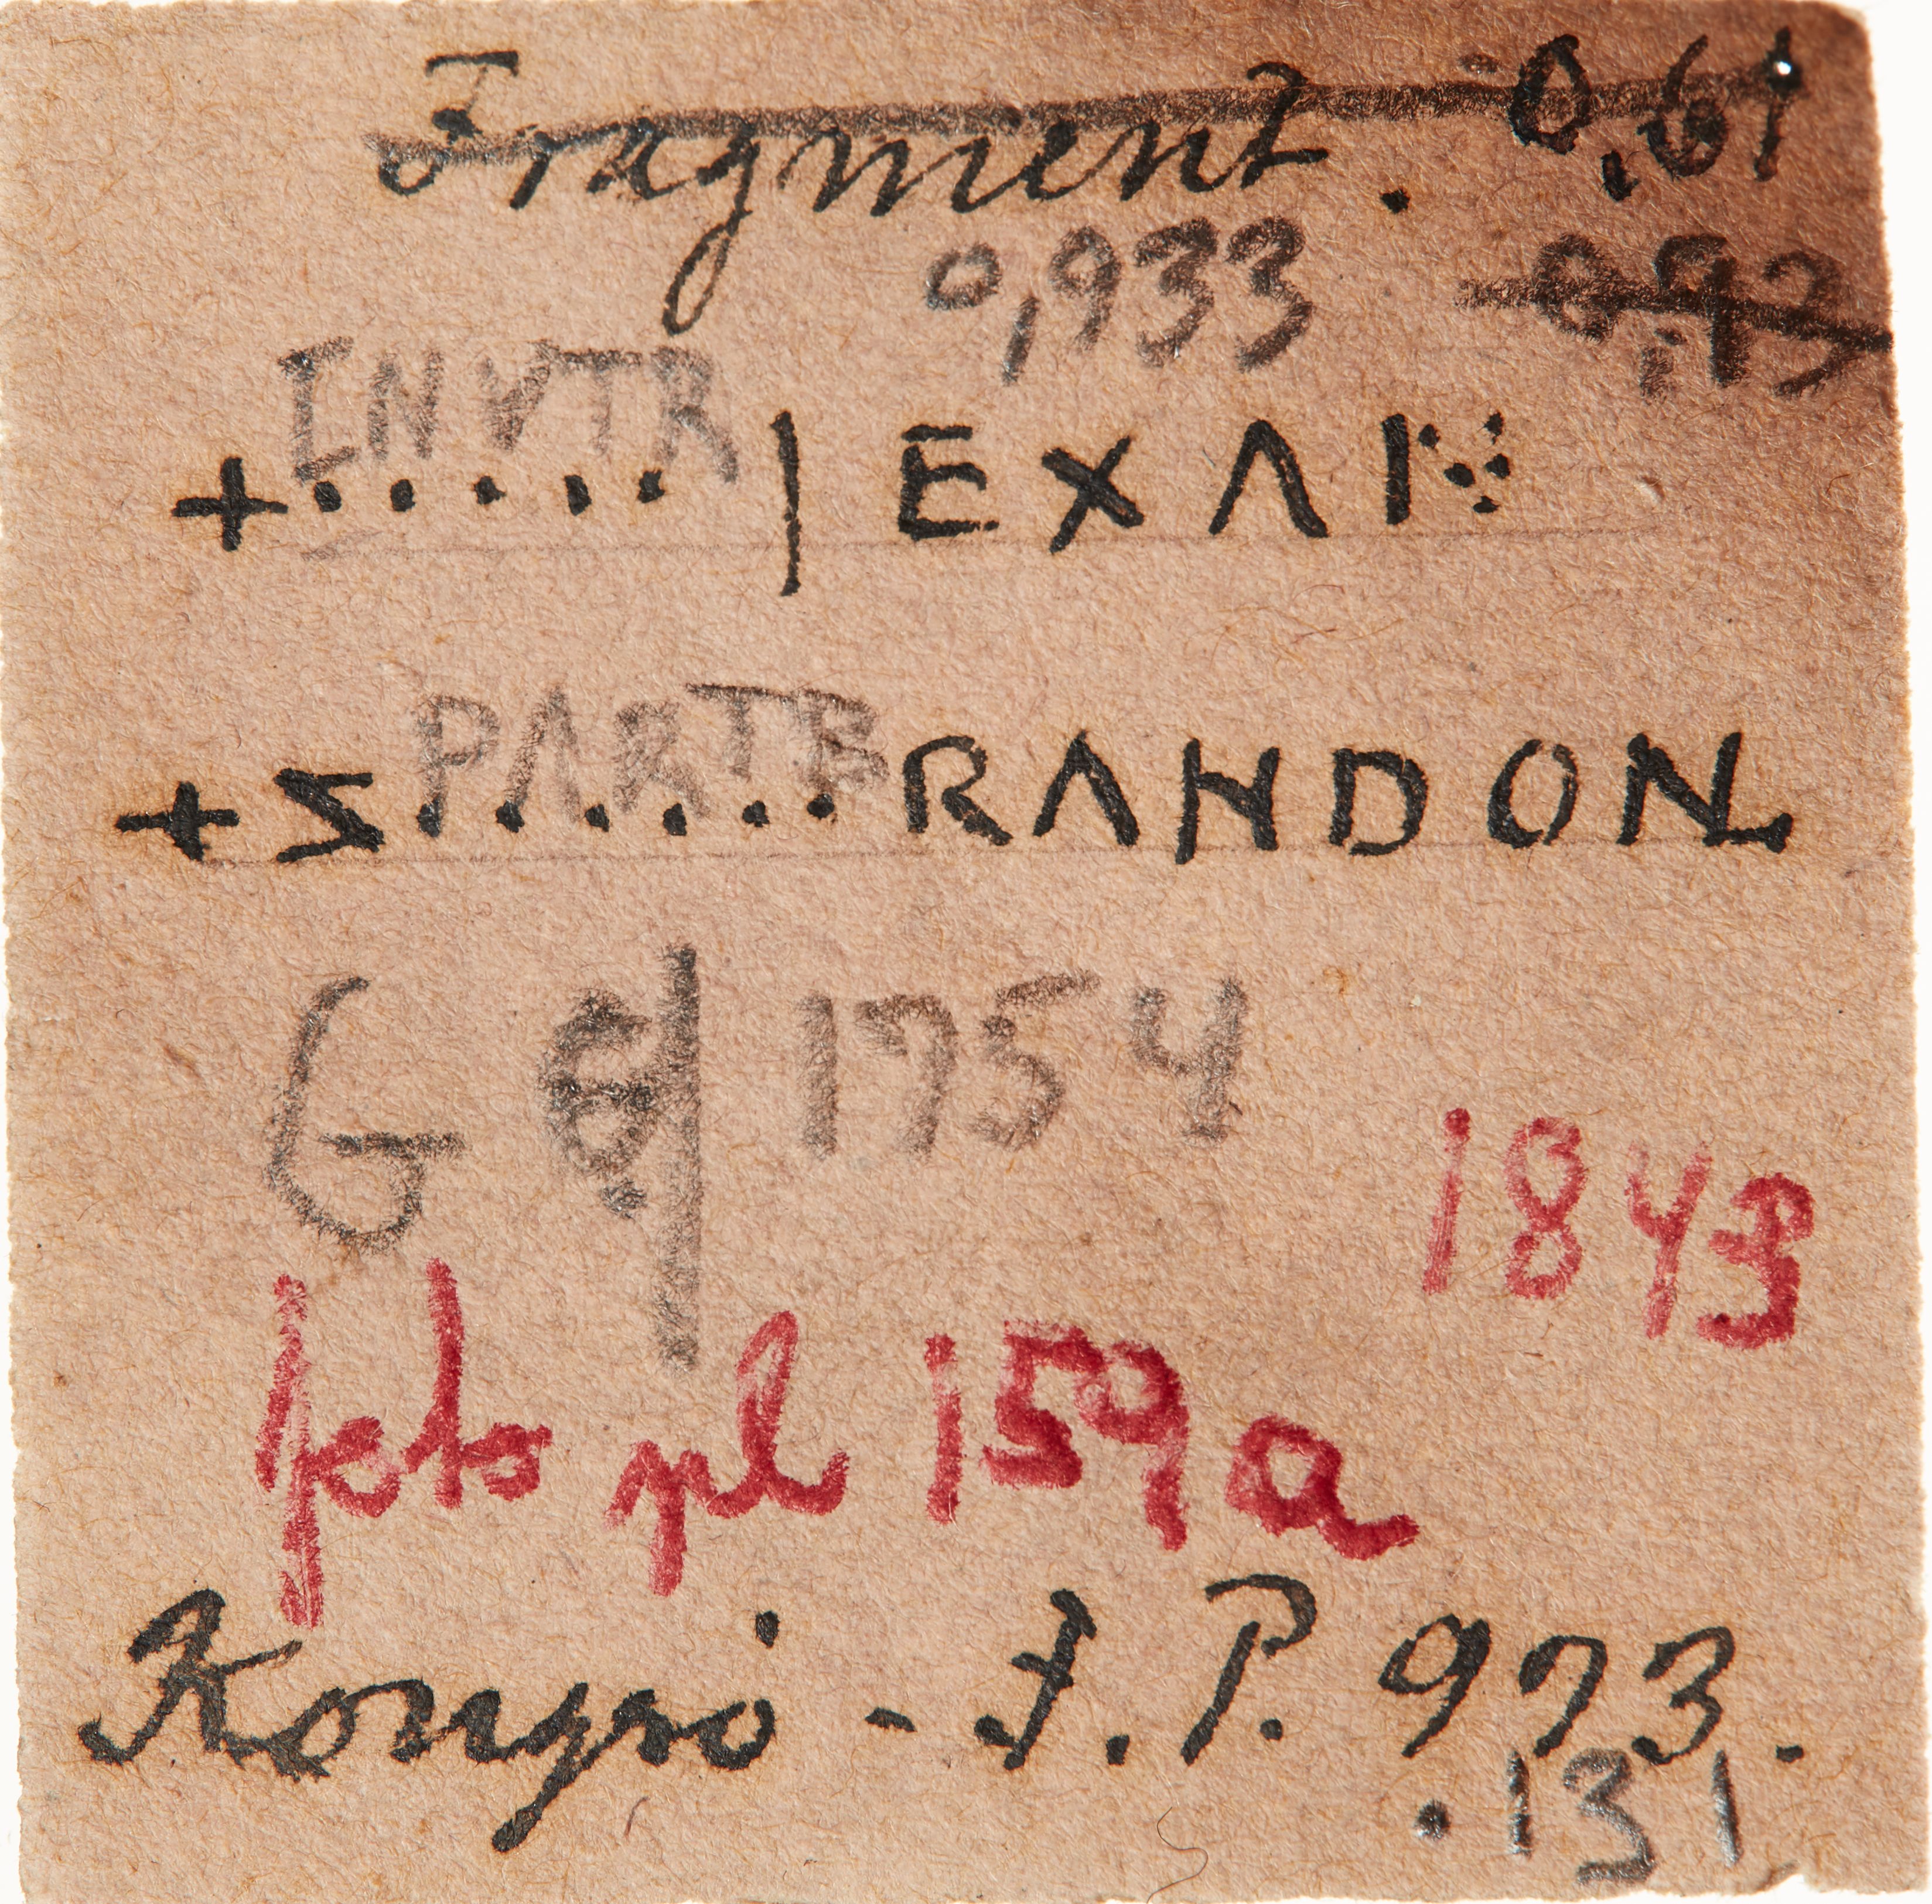 Fragment. 0,61
0,933 0,93
INVTR
+.....|EXAN
PARTB
+S......RANDON
G 1754
1843
foto pl 159a
Kongsö - F.P. 973.
.131